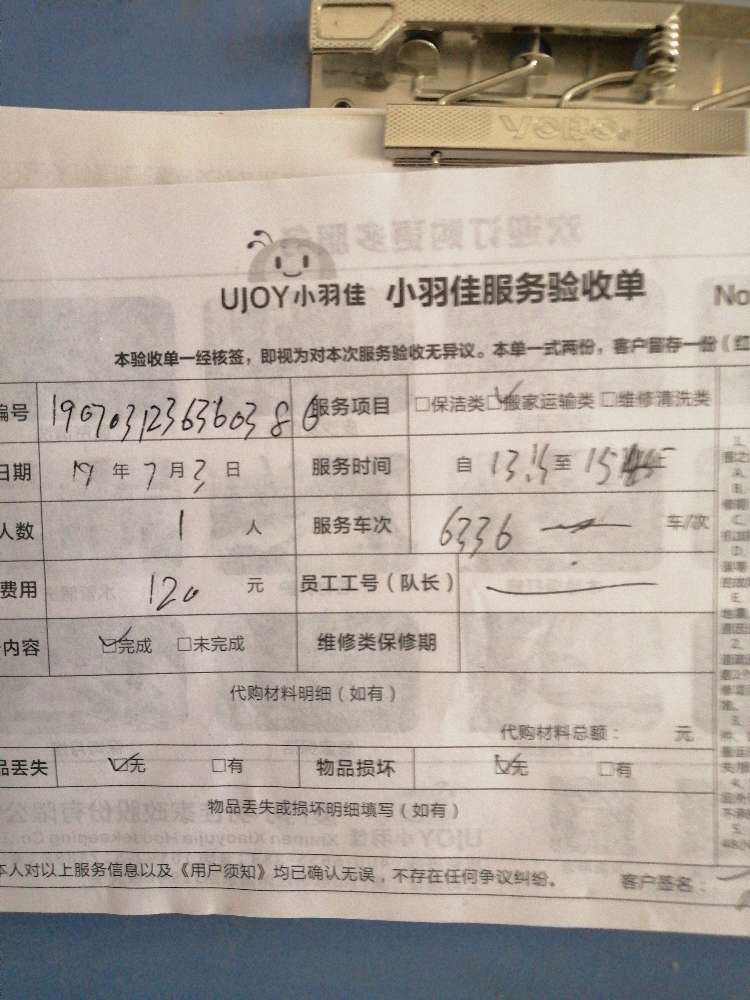 YOBO
UJOY小羽佳 小羽佳服务验收单 No
本验收单一经核签，即视为对本次服务验收无异议。本单一式两份，客户留存一份（红
编号 1907031236360386 服务项目 □保洁类☑搬家运输类□维修清洗类
日期 19年7月3日 服务时间 自 13:15至15
人数 1人 服务车次 6336 车/次
费用 120元 员工工号（队长）
内容 ☑完成 □未完成 维修类保修期
代购材料明细（如有）
代购材料总额： 元
品丢失 ☑无 □有 物品损坏 ☑无 □有
物品丢失或损坏明细填写（如有）
本人对以上服务信息以及《用户须知》均已确认无误，不存在任何争议纠纷。 客户签名：